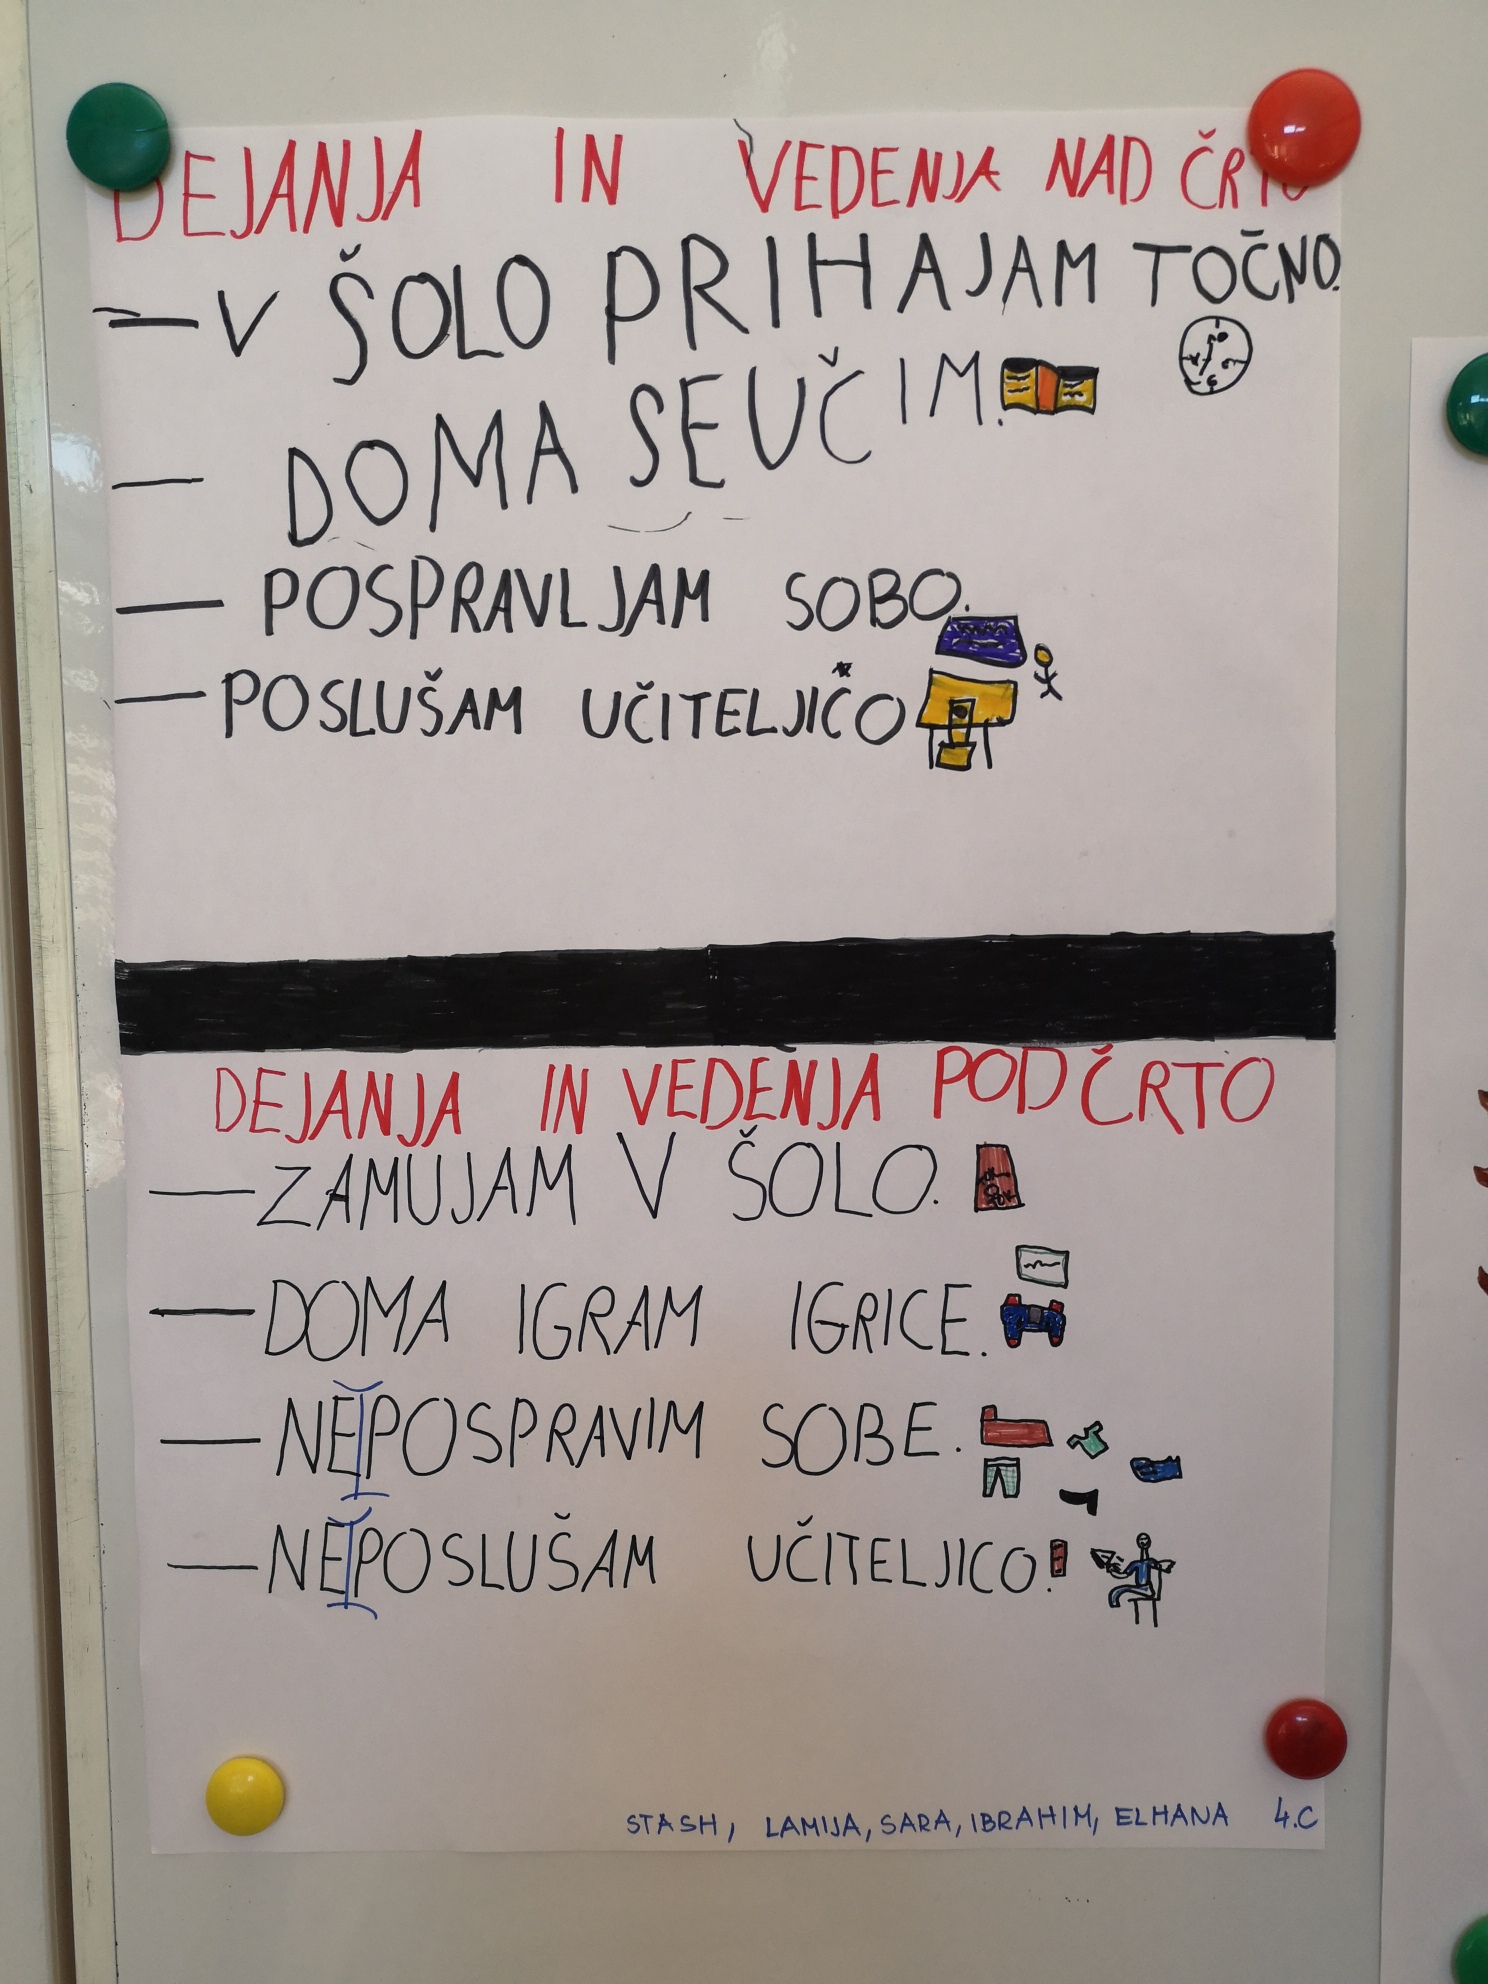 DEJANJA IN VEDENJA NAD ČRTO
– V ŠOLO PRIHAJAM TOČNO.
– DOMA SE UČIM.
– POSPRAVLJAM SOBO.
– POSLUŠAM UČITELJICO
DEJANJA IN VEDENJA POD ČRTO
– ZAMUJAM V ŠOLO.
– DOMA IGRAM IGRICE.
– NE POSPRAVIM SOBE.
– NE POSLUŠAM UČITELJICO!
STASH, LAMIJA, SARA, IBRAHIM, ELHANA 4.C